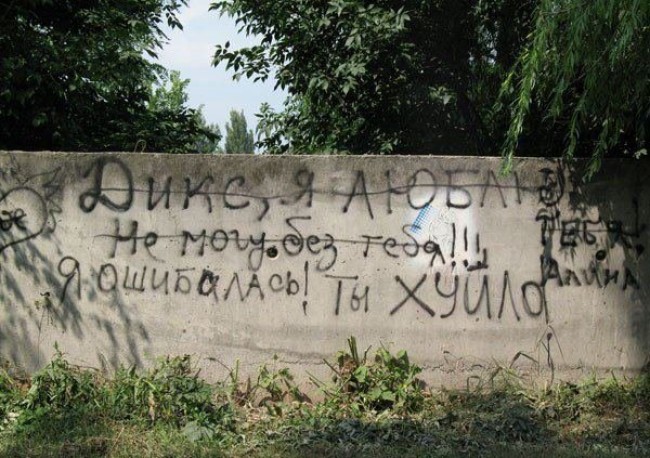 Дикс, я люблю
тебя!
Алина
Не могу без тебя!!!
Я ошибалась! Ты хуйло